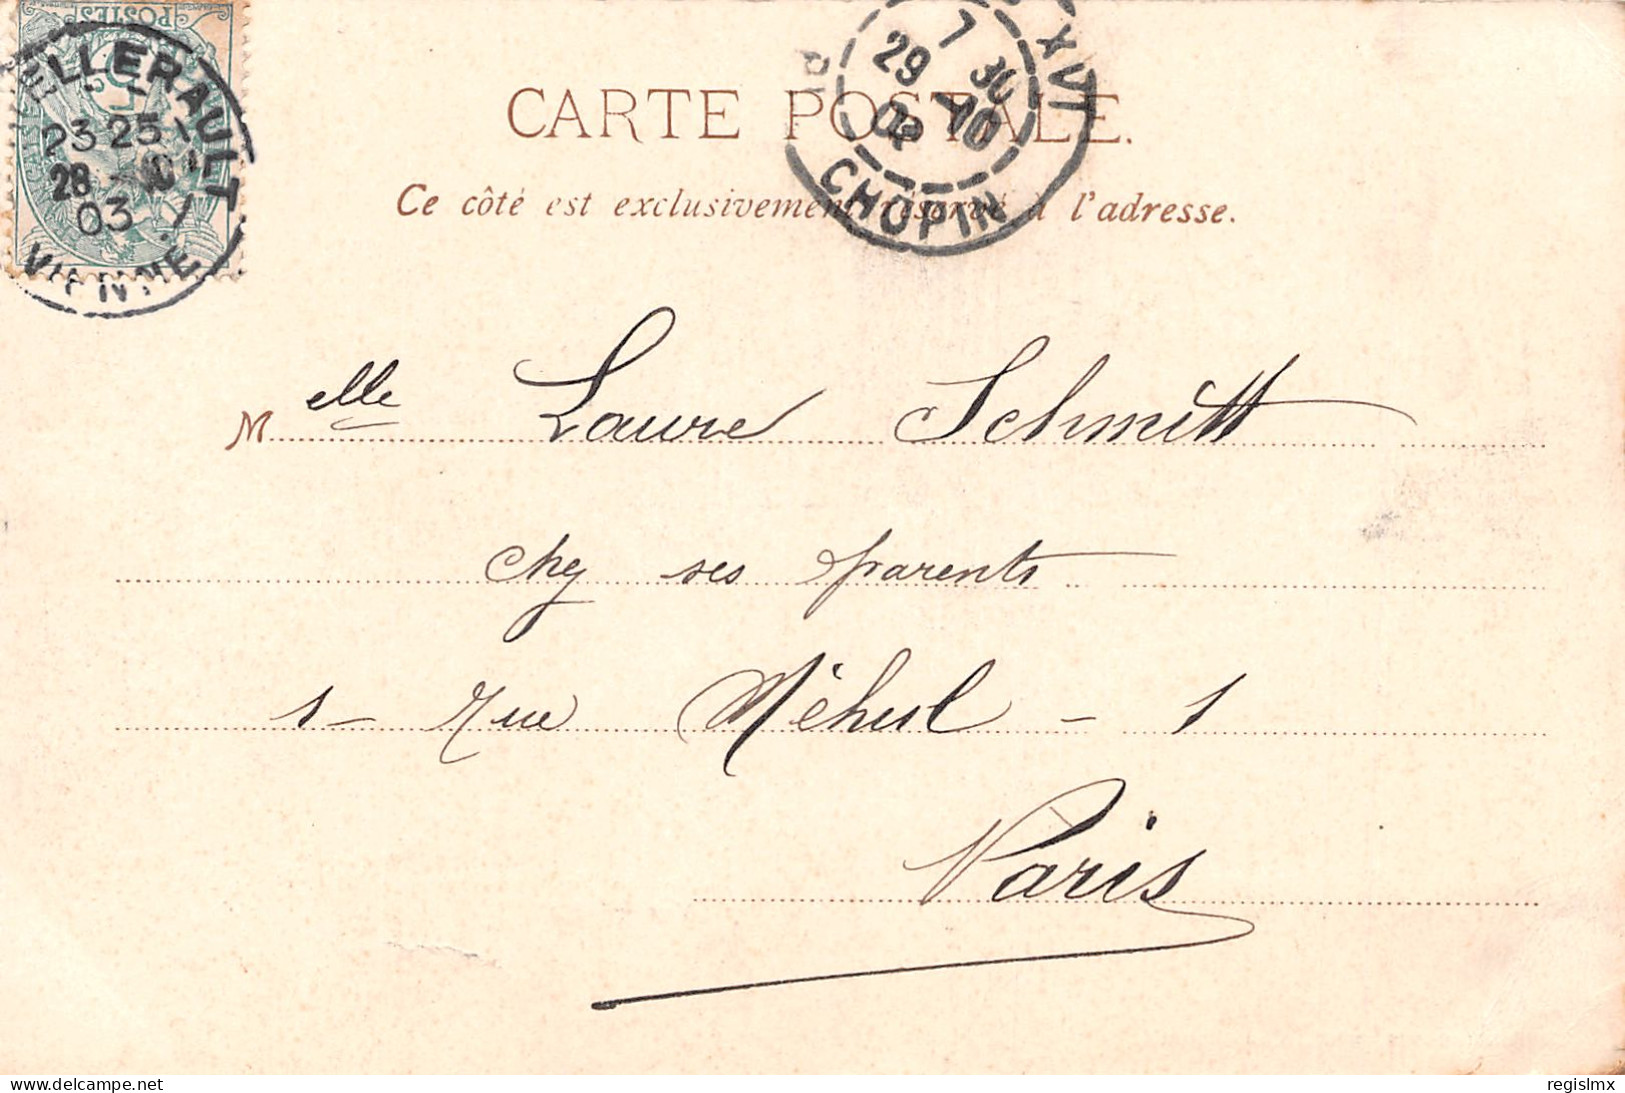 POSTES
CHATELLERAULT
23 25
28 -10
03
VIENNE
PARIS XVI
7 30
29 10
03
CHOPIN
CARTE POSTALE.
Ce côté est exclusivement réservé à l'adresse.
Melle Laure Schmitt
chez ses parents
1 - rue Méhul - 1
Paris
delcampe.net
regislmx